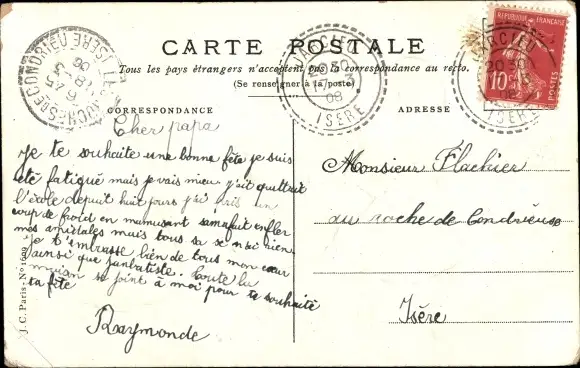 CARTE POSTALE
Tous les pays étrangers n'acceptent pas la correspondance au recto.
(Se renseigner à la poste)
CORRESPONDANCE
ADRESSE
REPUBLIQUE FRANÇAISE
10
POSTES
ISÈRE
08
ISÈRE
Cher papa
Je te souhaite une bonne fête je suis
été fatigué mais je vais mieu j'ait quittait
l'école depuit huit jours j'ai pris un
coup de froid en mamusant sa ma fait enfler
mes amictales mais tous sa se n'ai rien
je t'imbrasse bien de tous mon cœur
ainsi que janbatiste. toute la
maison se joint à moi pour te souhaité
ta fête
Raymonde
Monsieur Flachier
au roche de Condrieuse
Isère
J. C. Paris - N° 1609